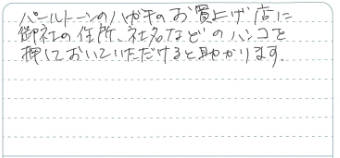 パールトーンのハガキのお買上げ店に
御社の住所、社名などのハンコを
押しておいていただけると助かります.